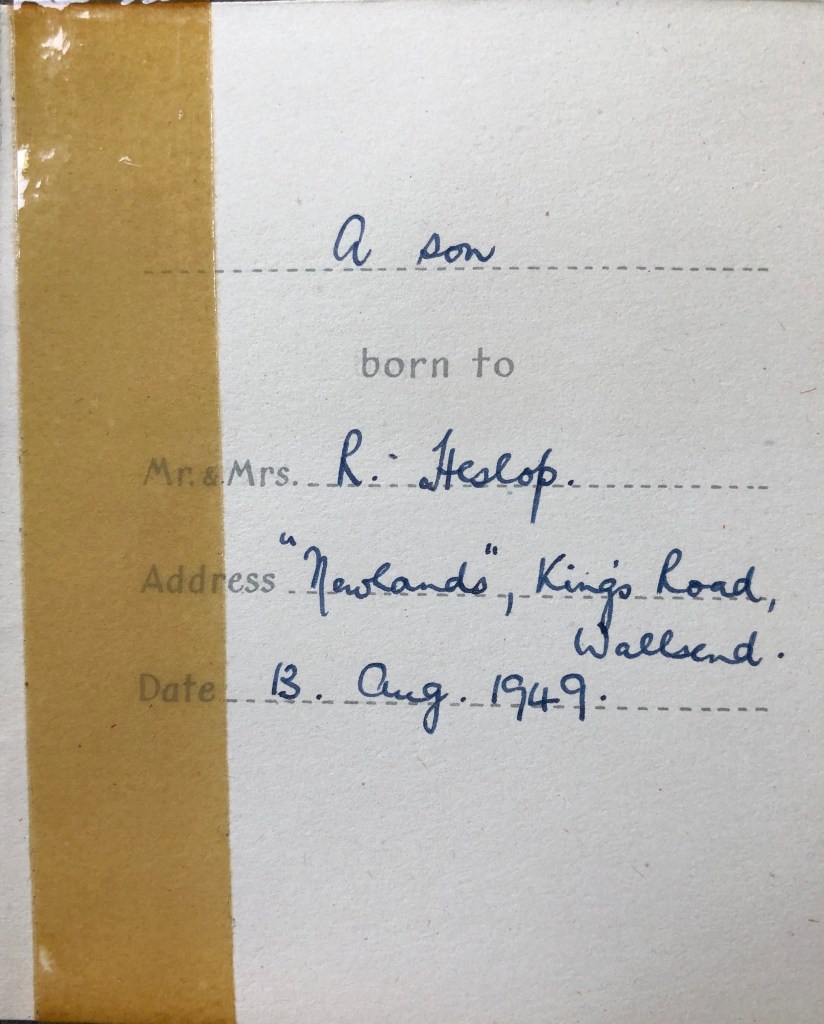 A son
born to
Mr. & Mrs. R. Heslop.
Address "Newlands", King's Road,
Wallsend.
Date 13. Aug. 1949.